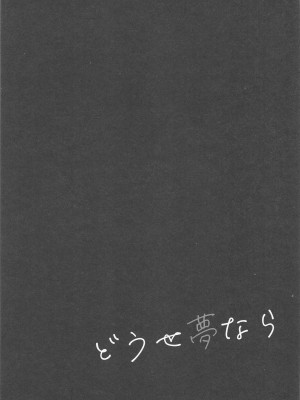 どうせ夢なら